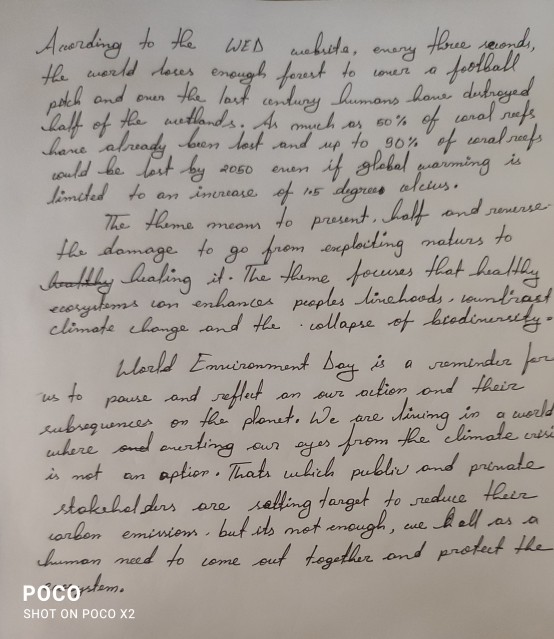 According to the WED website, every three seconds,
the world loses enough forest to cover a football
pitch and over the last century humans have destroyed
half of the wetlands. As much as 50% of coral reefs
have already been lost and up to 90% of coral reefs
could be lost by 2050 even if global warming is
limited to an increase of 1.5 degrees celcius.
The theme means to present, half and reverse
the damage to go from exploiting naturs to
healthy healing it. The theme focuses that healthy
ecosystems can enhances peoples livehoods, countract
climate change and the collapse of biodiversity.
World Environment Day is a reminder for
us to pause and reflect an our action and their
subsequences on the planet. We are living in a world
where and averting our eyes from the climate crisi
is not an option. Thats which public and private
stakeholders are setting target to reduce their
carbon emissions. but its not enough, we all as a
human need to come out together and protect the
ecosystem.
POCO
SHOT ON POCO X2